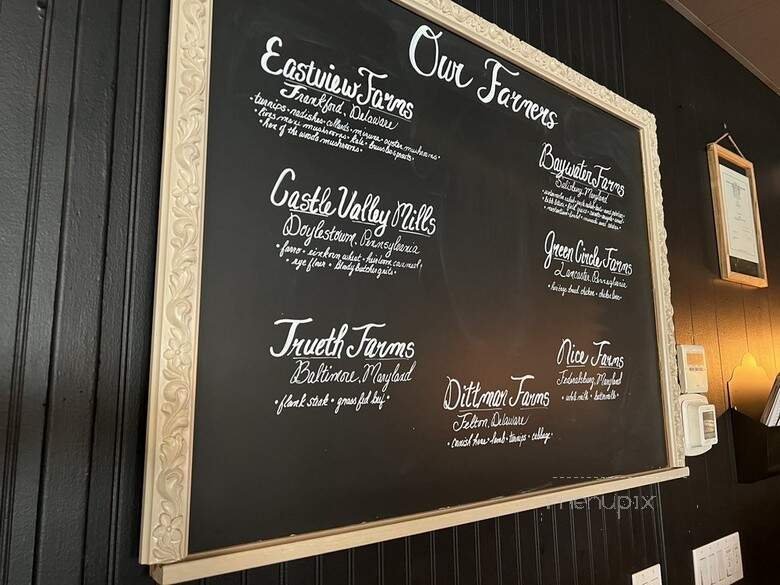 Our Farmers
Eastview Farms
Frankford, Delaware
• turnips • radishes • collards • mizuna • oyster mushrooms •
lions mane mushrooms • kale • brussles sprouts •
• hen of the woods mushrooms •
Castle Valley Mills
Doylestown, Pennsylvania
• farro • einkorn wheat • heirloom cornmeal •
• rye flour • bloody butcher grits •
Trueth Farms
Baltimore, Maryland
• flank steak • grass fed beef •
Dittman Farms
Felton, Delaware
• cornish hens • lamb • turnips • cabbage
Baywater Farms
Salisbury, Maryland
Green Circle Farms
Lancaster, Pennsylvania
• heritage breed chicken • chicken livers •
Nice Farms
Federalsburg, Maryland
• whole milk • buttermilk •
menupix